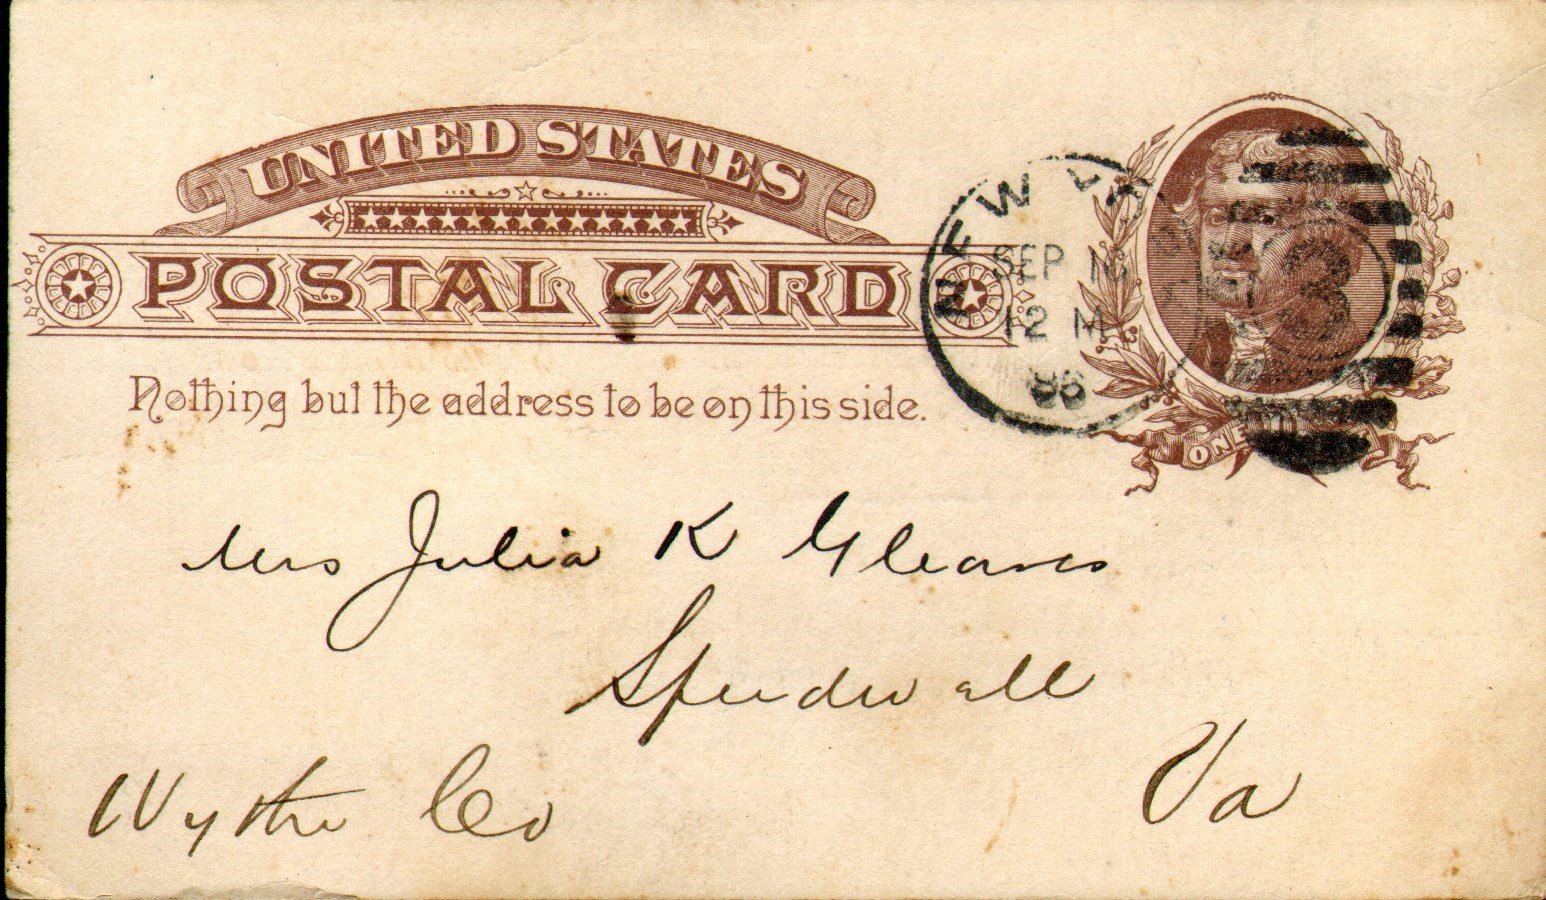 UNITED STATES
POSTAL CARD
Nothing but the address to be on this side.
NEW YO
SEP
12 M
86
3
ONE
Mrs Julia K Gleaves
Speedwell
Wythe Co
Va